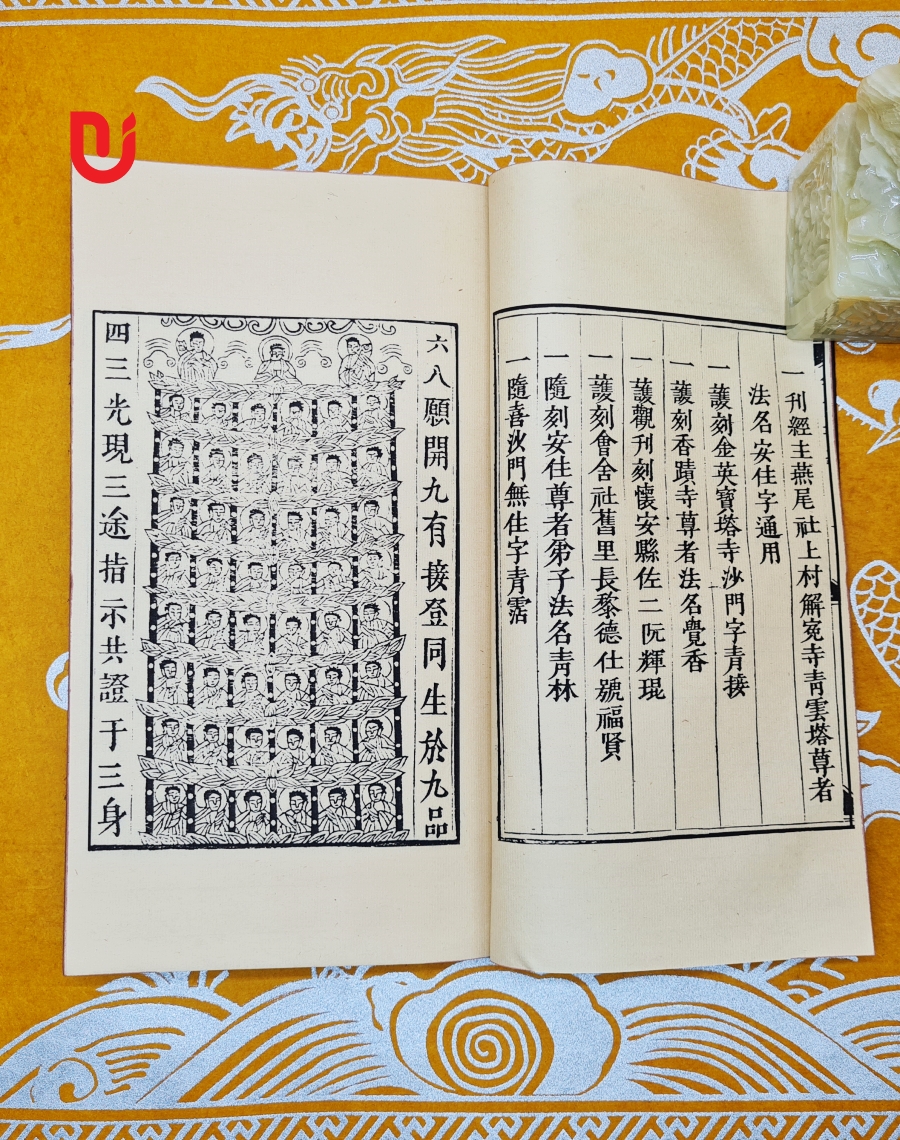 一刊經主燕尾社上村解寃寺靑雲塔尊者
法名安住字通用
一護刻金英寶塔寺沙門字青接
一護刻香蹟寺尊者法名覺香
一護觀刊刻懷安縣佐二阮輝琨
一護刻會舍社舊里長黎德仕號福賢
一隨刻安住尊者弟子法名靑林
一隨喜沙門無住字青霑
六八願開九有接登同生於九品
四三光現三途指示共證于三身